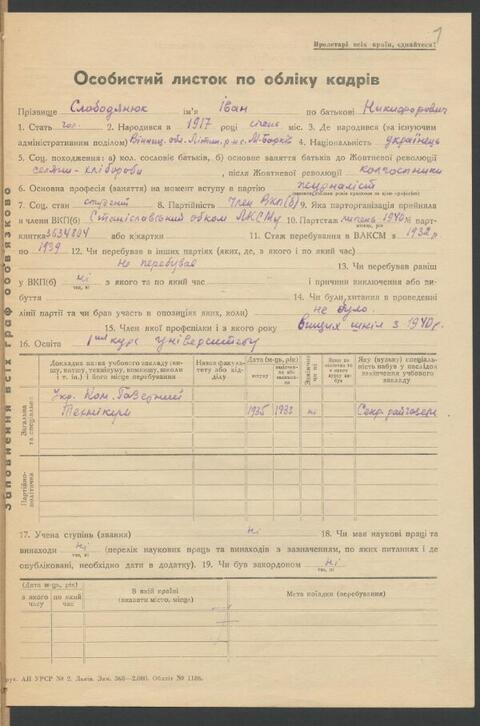 1
Пролетарі всіх країн, єднайтеся!
Особистий листок по обліку кадрів
Прізвище Слободянюк ім'я Іван по батькові Никифорович
1. Стать чол. 2. Народився в 1917 році січень міс. 3. Де народився (за існуючим
адміністративним поділом) Вінниц. обл. Літин. р-н с. М-Борків 4. Національність українець
5. Соц. походження: а) кол. сословіє батьків, б) основне заняття батьків до Жовтневої революції
селяни-хлібороби, після Жовтневої революції колгоспники
6. Основна професія (заняття) на момент вступу в партію журналіст
7. Соц. стан студент 8. Партійність Член ВКП(б) 9. Яка парторганізація прийняла
в члени ВКП(б) Станіславський обком ЛКСМУ 10. Партстаж липень 1940 № парт-
квитка 3634704 або к/картки 11. Стаж перебування в ВЛКСМ з 1932 р
по 1939 12. Чи перебував в інших партіях (яких, де, з якого і по який час)
Не перебував 13. Чи перебував раніш
у ВКП(б) ні з якого та по який час і причини виключення або ви-
буття 14. Чи були хитання в проведенні
лінії партії та чи брав участь в опозиціях яких, коли) не було
15. Член якої профспілки і з якого року Вищих шкіл з 1940 р.
16. Освіта 1 курс університету
Докладна назва учбового закладу (вишу, втишу, технікуму, комвишу, школи і т. ін.) і його місце перебування
Назва факультету або відділу
Дата (м-ць, рік)
вступу
Яку (вузьку) спеціальність набув у наслідок закінчення учбового закладу
Загальна та спеціальна
Укр. Ком. Газетний
Технікум 1935 1933 ні Секр. райгазети
Партійно-політична
Заповнення всіх граф обов'язково
17. Учена ступінь (звання) ні 18. Чи має наукові праці та
винаходи ні (перелік наукових праць та винаходів з зазначенням, по яких питаннях і де
опубліковані, необхідно дати в додатку). 19. Чи був закордоном ні
(Дата м-ць, рік)
з якого часу
по який час
В якій країні
(вказати місто, місце)
Мета поїздки (перебування)
рук. АН УРСР № 2. Львів. Зам. 368—2.000. Обліт № 1186.